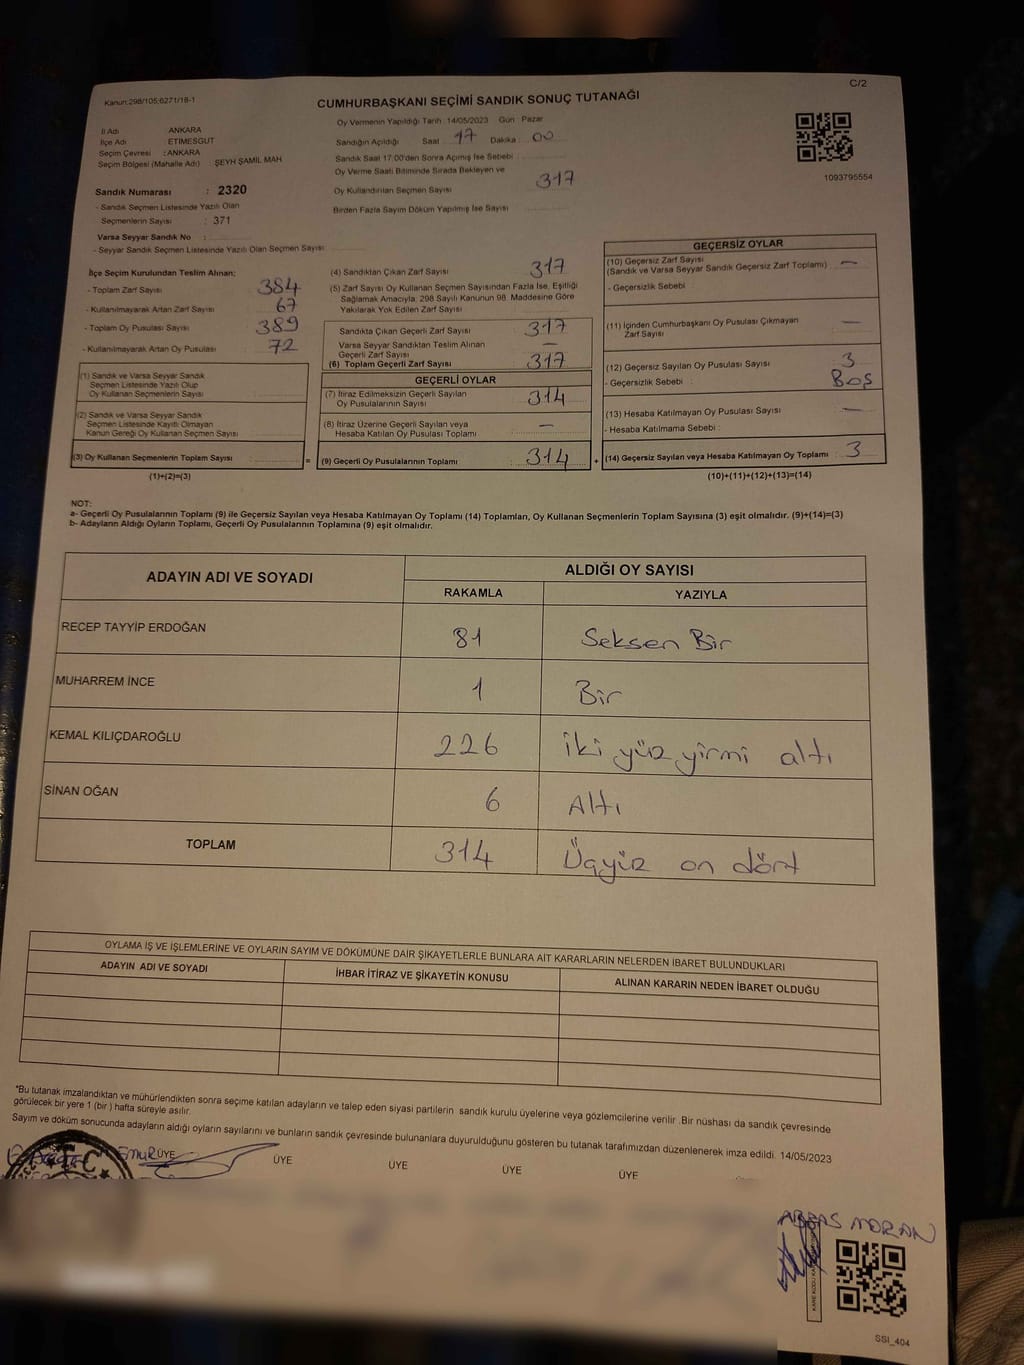 C/2
Kanun:298/105;6271/18-1
CUMHURBAŞKANI SEÇİMİ SANDIK SONUÇ TUTANAĞI
Oy Vermenin Yapıldığı Tarih :14/05/2023 Gün Pazar
İl Adı ANKARA
İlçe Adı ETİMESGUT
Seçim Çevresi : ANKARA
Seçim Bölgesi (Mahalle Adı) ŞEYH ŞAMİL MAH
Sandık Numarası : 2320
- Sandık Seçmen Listesinde Yazılı Olan
Seçmenlerin Sayısı : 371
Varsa Seyyar Sandık No :
- Seyyar Sandık Seçmen Listesinde Yazılı Olan Seçmen Sayısı
Sandığın Açıldığı Saat 17 Dakika 00
Sandık Saat 17:00'den Sonra Açılmış İse Sebebi
Oy Verme Saati Bitiminde Sırada Bekleyen ve
Oy Kullandırılan Seçmen Sayısı 317
Birden Fazla Sayım Döküm Yapılmış İse Sayısı
1093795554
İlçe Seçim Kurulundan Teslim Alınan;
- Toplam Zarf Sayısı 384
- Kullanılmayarak Artan Zarf Sayısı 67
- Toplam Oy Pusulası Sayısı 389
- Kullanılmayarak Artan Oy Pusulası 72
(1) Sandık ve Varsa Seyyar Sandık
Seçmen Listesinde Yazılı Olup
Oy Kullanan Seçmenlerin Sayısı
(2) Sandık ve Varsa Seyyar Sandık
Seçmen Listesinde Kayıtlı Olmayan
Kanun Gereği Oy Kullanan Seçmen Sayısı
(3) Oy Kullanan Seçmenlerin Toplam Sayısı =
(1)+(2)=(3)
(4) Sandıktan Çıkan Zarf Sayısı 317
(5) Zarf Sayısı Oy Kullanan Seçmen Sayısından Fazla İse, Eşitliği
Sağlamak Amacıyla; 298 Sayılı Kanunun 98. Maddesine Göre
Yakılarak Yok Edilen Zarf Sayısı
Sandıkta Çıkan Geçerli Zarf Sayısı 317
Varsa Seyyar Sandıktan Teslim Alınan
Geçerli Zarf Sayısı —
(6) Toplam Geçerli Zarf Sayısı 317
GEÇERLİ OYLAR
(7) İtiraz Edilmeksizin Geçerli Sayılan
Oy Pusulalarının Sayısı 314
(8) İtiraz Üzerine Geçerli Sayılan veya
Hesaba Katılan Oy Pusulası Toplamı —
(9) Geçerli Oy Pusulalarının Toplamı 314 +
GEÇERSİZ OYLAR
(10) Geçersiz Zarf Sayısı
(Sandık ve Varsa Seyyar Sandık Geçersiz Zarf Toplamı) —
- Geçersizlik Sebebi :
(11) İçinden Cumhurbaşkanı Oy Pusulası Çıkmayan
Zarf Sayısı —
(12) Geçersiz Sayılan Oy Pusulası Sayısı 3
- Geçersizlik Sebebi : Boş
(13) Hesaba Katılmayan Oy Pusulası Sayısı —
- Hesaba Katılmama Sebebi :
(14) Geçersiz Sayılan veya Hesaba Katılmayan Oy Toplamı 3
(10)+(11)+(12)+(13)=(14)
NOT:
a- Geçerli Oy Pusulalarının Toplamı (9) ile Geçersiz Sayılan veya Hesaba Katılmayan Oy Toplamı (14) Toplamları, Oy Kullanan Seçmenlerin Toplam Sayısına (3) eşit olmalıdır. (9)+(14)=(3)
b- Adayların Aldığı Oyların Toplamı, Geçerli Oy Pusulalarının Toplamına (9) eşit olmalıdır.
ADAYIN ADI VE SOYADI ALDIĞI OY SAYISI
RAKAMLA YAZIYLA
RECEP TAYYİP ERDOĞAN 81 Seksen Bir
MUHARREM İNCE 1 Bir
KEMAL KILIÇDAROĞLU 226 iki yüz yirmi altı
SİNAN OĞAN 6 Altı
TOPLAM 314 Üçyüz on dört
OYLAMA İŞ VE İŞLEMLERİNE VE OYLARIN SAYIM VE DÖKÜMÜNE DAİR ŞİKAYETLERLE BUNLARA AİT KARARLARIN NELERDEN İBARET BULUNDUKLARI
ADAYIN ADI VE SOYADI İHBAR İTİRAZ VE ŞİKAYETİN KONUSU ALINAN KARARIN NEDEN İBARET OLDUĞU
*Bu tutanak imzalandıktan ve mühürlendikten sonra seçime katılan adayların ve talep eden siyasi partilerin sandık kurulu üyelerine veya gözlemcilerine verilir .Bir nüshası da sandık çevresinde
görülecek bir yere 1 (bir ) hafta süreyle asılır.
Sayım ve döküm sonucunda adayların aldığı oyların sayılarını ve bunların sandık çevresinde bulunanlara duyurulduğunu gösteren bu tutanak tarafımızdan düzenlenerek imza edildi. 14/05/2023
ÜYE ÜYE ÜYE ÜYE ÜYE
T.C.
ABBAS MORAN
SSI_404